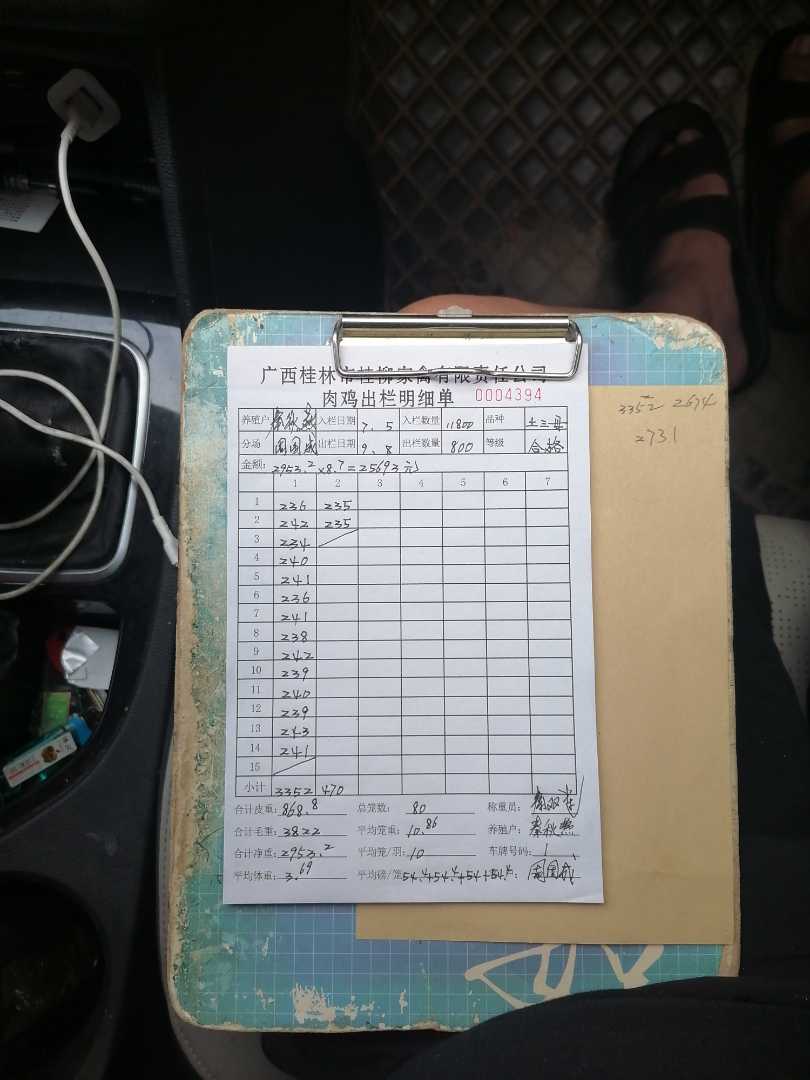 广西桂林市桂柳家禽有限责任公司
肉鸡出栏明细单 0004394
3352 2674
2731
养殖户 秦秋燕 入栏日期 7.5 入栏数量 11800 品种 土三号
分场 周国成 出栏日期 9.8 出栏数量 800 等级 合格
金额: 2953.2×8.7=25693元
1 2 3 4 5 6 7
1 236 235
2 242 235
3 234
4 240
5 241
6 236
7 241
8 238
9 242
10 239
11 240
12 239
13 243
14 241
15
小计 3352 470
合计皮重: 868.8 总笼数: 80 称重员:
合计毛重: 3822 平均笼重: 10.86 养殖户: 秦秋燕
合计净重: 2953.2 平均笼/羽: 10 车牌号码: 1
平均体重: 3.69 平均磅/笼 54.4+54.4+54+54.4: 周国成